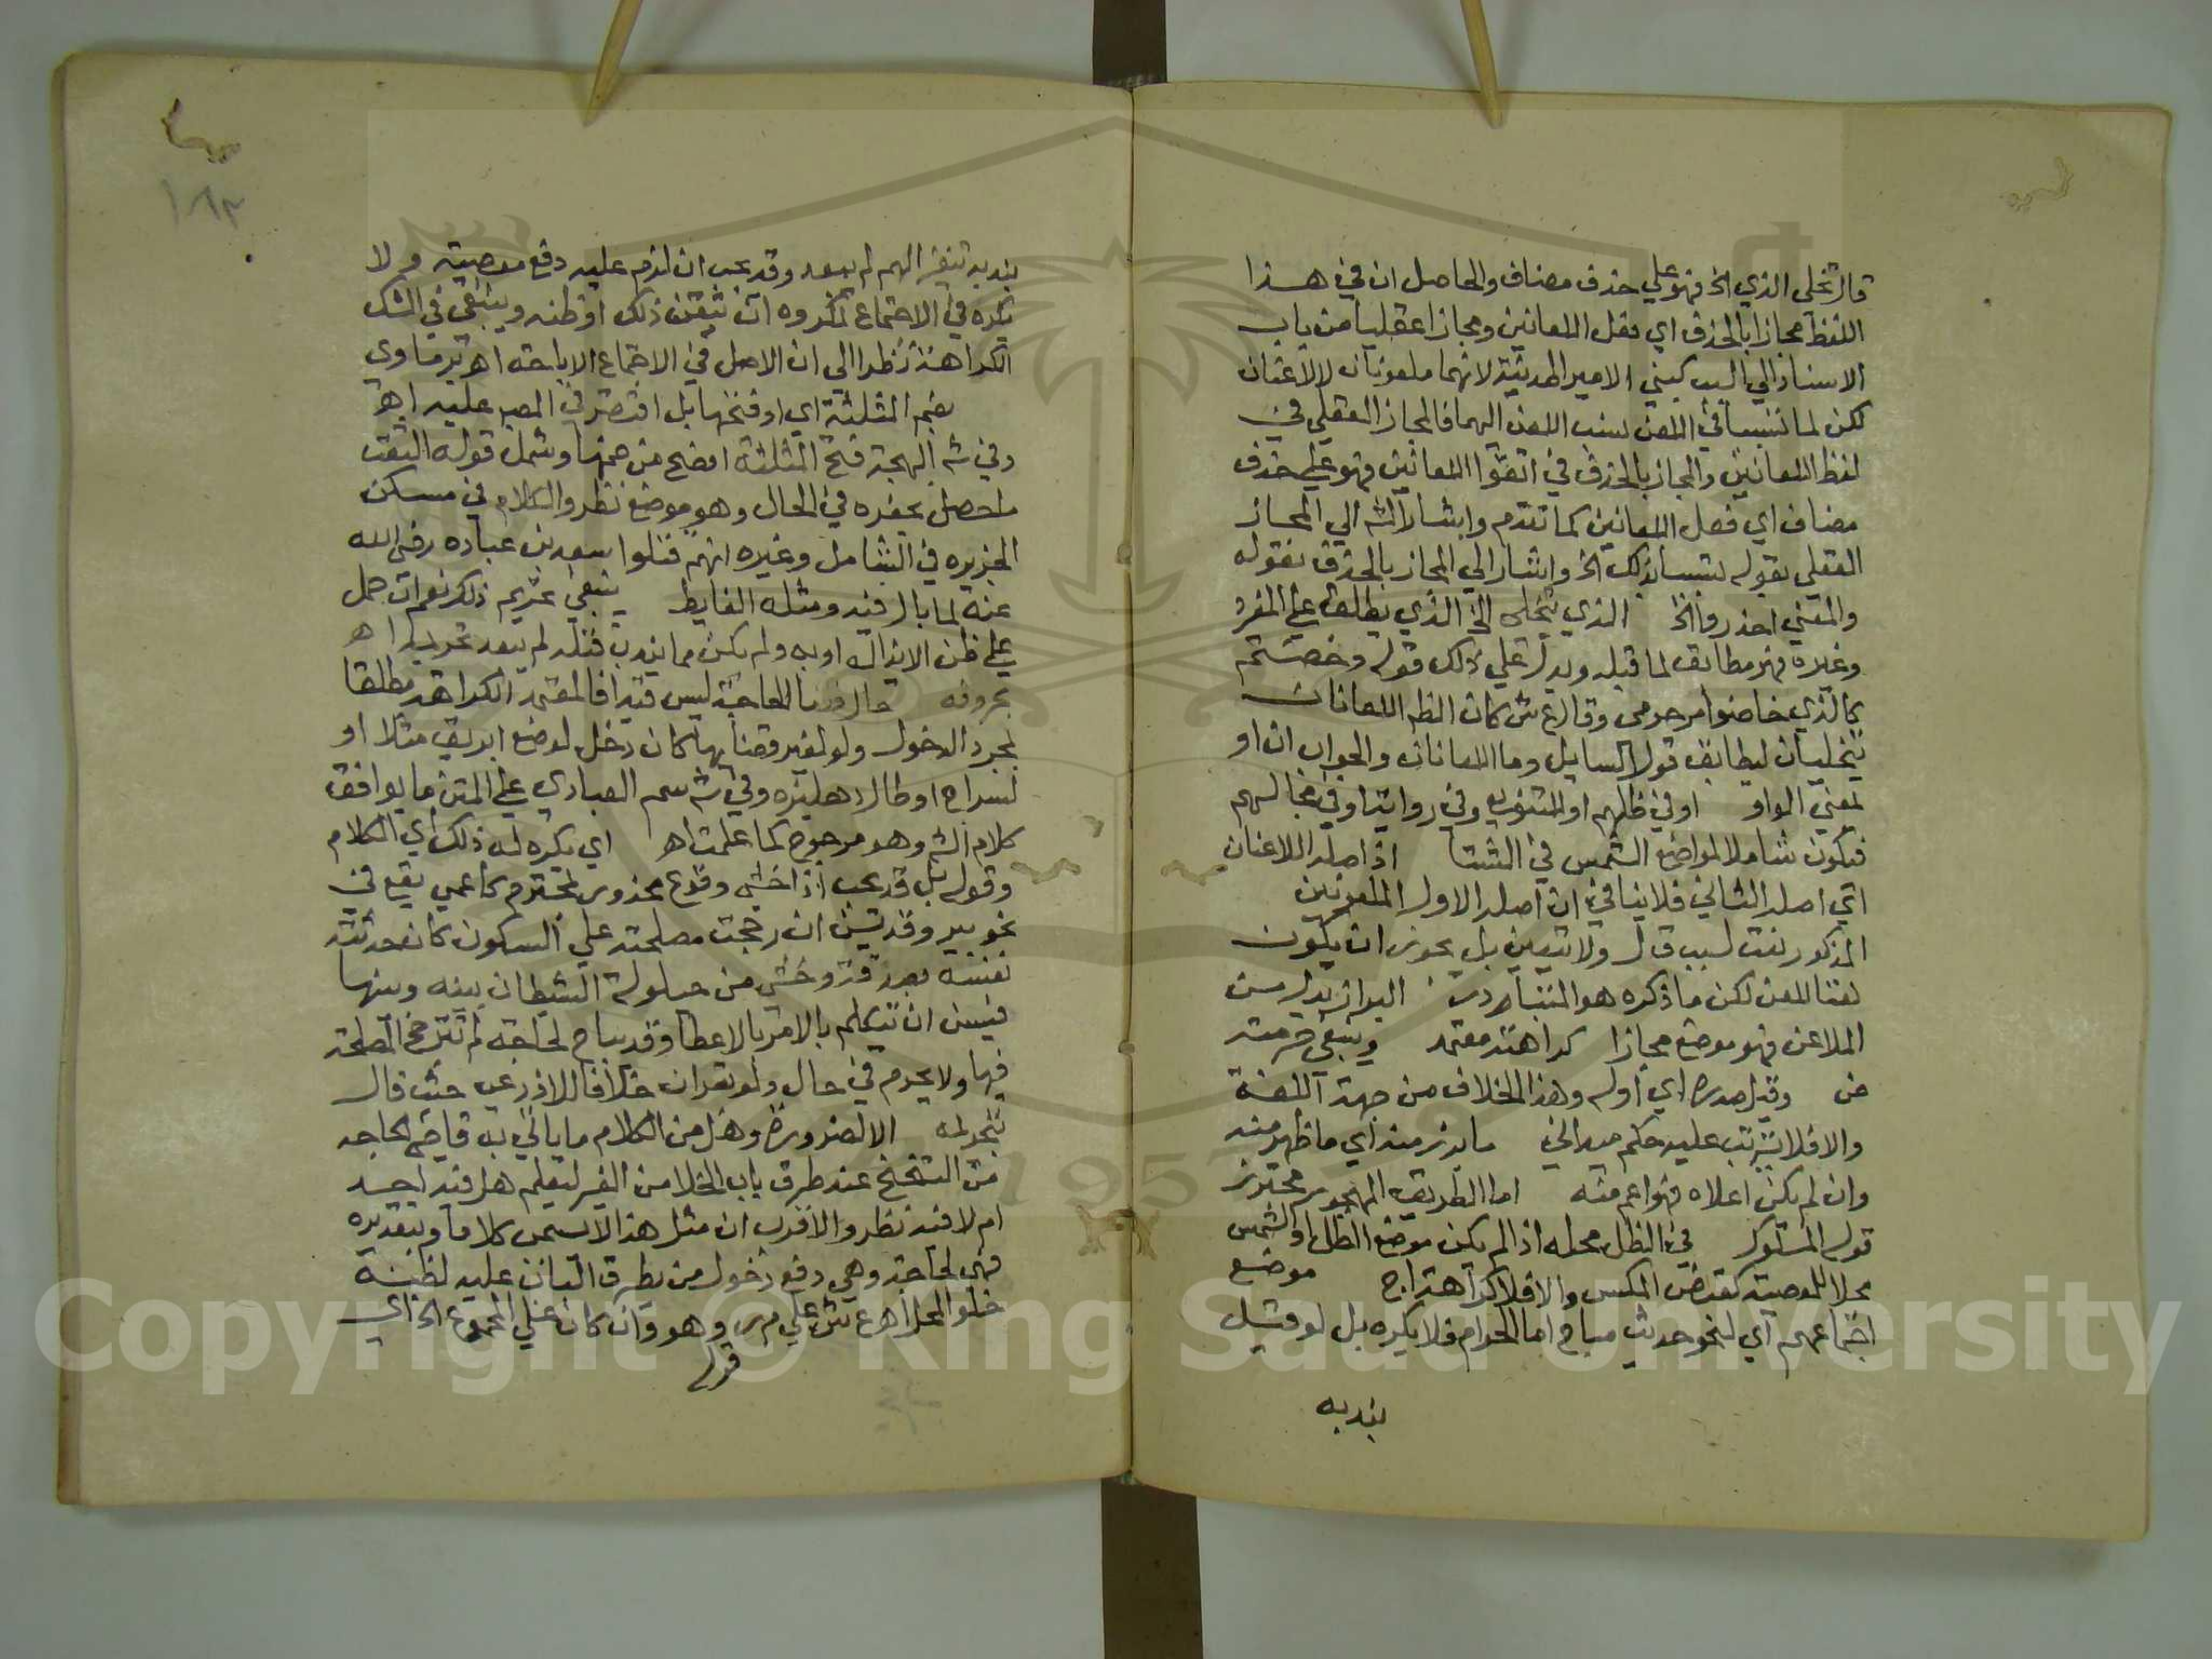 قال تخلى الذي الخ فهو على حذف مضاف والحاصل ان في هذا
اللفظ مجازا بالحذف اي فعل اللعانين ومجازا عقليا من باب
الاسناد الي السبب كبني الامير المدينة لانهما ملعونان لا لاعنان
لكن لما تسببا في اللعن نسب اللعن اليهما فالمجاز العقلي في
لفظ اللعانين والمجاز بالحذف في اتقوا اللعانين فهو على حذف
مضاف اي فعل اللعانين كما تقدم واشار الش الي المجاز
العقلي بقوله تسببا بذلك الخ واشار الي المجاز بالحذف بقوله
والمعني احذروا الخ الذي يتخلى الخ الذي يطلق على المفرد
وغيره فهو مطابق لما قبله ويدل علي ذلك قوله وخضتم
كالذي خاضوا مرحومي وقال ع ش كان الظم اللعانان
يتخليان ليطابق قول السايل وما اللعانان والجواب ان او
بمعني الواو او في ظلهم او للتنويع وفي رواية او في مجالسهم
فيكون شاملا لمواضع الشمس في الشتا اذ اصله اللاعنان
اي اصله الثاني فلا ينافي ان اصله الاول الملعونين
المذكور نعت لسبب قال ولا يتعين بل يجوز ان يكون
نعتا للعن لكن ما ذكره هو المتبادر البراز بدل من
الملاعن فهو موضع مجازا كراهته معتمد وينبغي حرمته
خ وقيل مدرك اي اوله وهذا الخلاف من جهة اللغة
والا فلا يترتب عليه حكم ميداني ما برز منه اي ما ظهر منه
وان لم يكن اعلاه فهو اعم منه اما الطريق المهجور محترز
قوله المسلوك في الظل محله اذا لم يكن موضع الظل او الشمس
محلا للمعصية كقبض المكس والا فلا كراهة اج موضع
اجتماعهم اي لنحو حديث مباح اما الحرام فلا يكره بل لو قيل
بندبه
١٨٣
بندبه تنفيرا لهم لم يبعد وقد يجب ان لزم عليه دفع معصية ولا
يكره في الاجتماع لمكروه ان تيقن ذلك او ظنه وينبغي في الشك
الكراهة نظرا الي ان الاصل في الاجتماع الاباحة اه برماوي
بضم المثلثة اي او فتحها بل اقتصر في المصبـ عليه اه
وفي ش البهجة فتح المثلثة افصح من ضمها وشمل قوله الثقب
ما حصل بحفره في الحال وهو موضع نظر والكلام في مسكن
الجن بره في الشامل وغيره انهم قتلوا سعد بن عباده رضي الله
عنه لما بال فيه ومثله الغايط ينبغي تحريم ذلك نعم ان حمل
علي ظن الايذا له او به ولم يكن مما يندب قتله لم يبعد تحريمه اه
بحروفه حال قضا الحاجة ليس قيدا فالمعتمد الكراهة مطلقا
بمجرد الدخول ولو لغير قضائها كان دخل لوضع ابريق مثلا او
لسراج او طال دهليزه وفي ش سم العبادي علي المتن ما يوافق
كلام الش وهو مرجوح كما علمت اه اي يكره له ذلك اي الكلام
وقوله بل قد يجب اذا خشي وقوع محذور لمحترم كاعمي يقع في
نحو بير وقد يسن ان رجحت مصلحته علي السكون كان حدثته
نفسه بصدقة وخشي من حيلولة الشيطان بينه وبينها
فيسن ان يتكلم بالامر بالاعطا وقد يباح لحاجة لم تترجح المصلحة
فيها ولا يحرم في حال ولو بقران خلافا للاذرعي حيث قال
بتحريمه الا لضرورة وهل من الكلام ما ياتي به قاضي الحاجه
من التنحنح عند طرق باب الخلا من الغير ليعلم هل فيه احد
ام لا فيه نظر والاقرب ان مثل هذا لا يسمي كلاما وبتقديره
فهو لحاجة وهي دفع دخول من يطرق الباب عليه لظنه
خلو المحل اه ع ش علي م ر وهو وان كان علي المجموع الخ اي
قوله